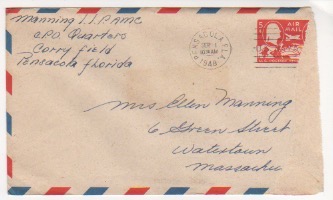 Manning J.J. PAMC
C.P.O. Quarters
Corry Field
Pensacola Florida
PENSACOLA, FLA.
1948
5¢
AIR
MAIL
Mrs Ellen Manning
6 Green Street
Watertown
Massachu